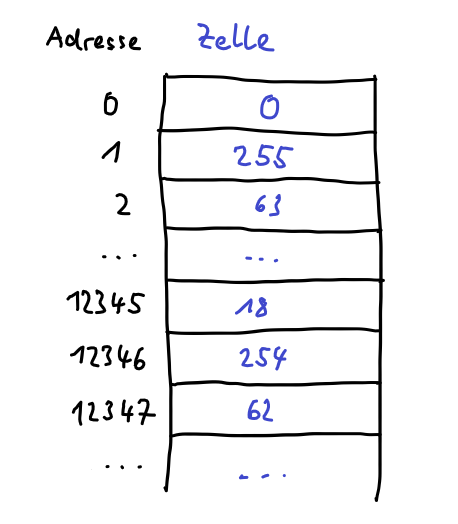 Adresse Zelle
0 0
1 255
2 63
... ...
12345 18
12346 254
12347 62
... ...